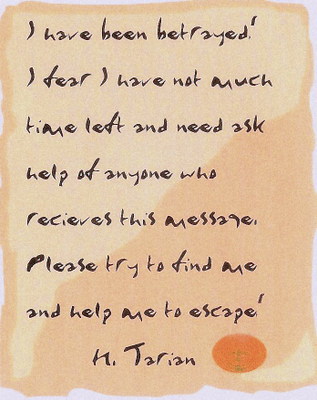 I have been betrayed!
I fear I have not much
time left and need ask
help of anyone who
recieves this message.
Please try to find me
and help me to escape!
H. Tarian